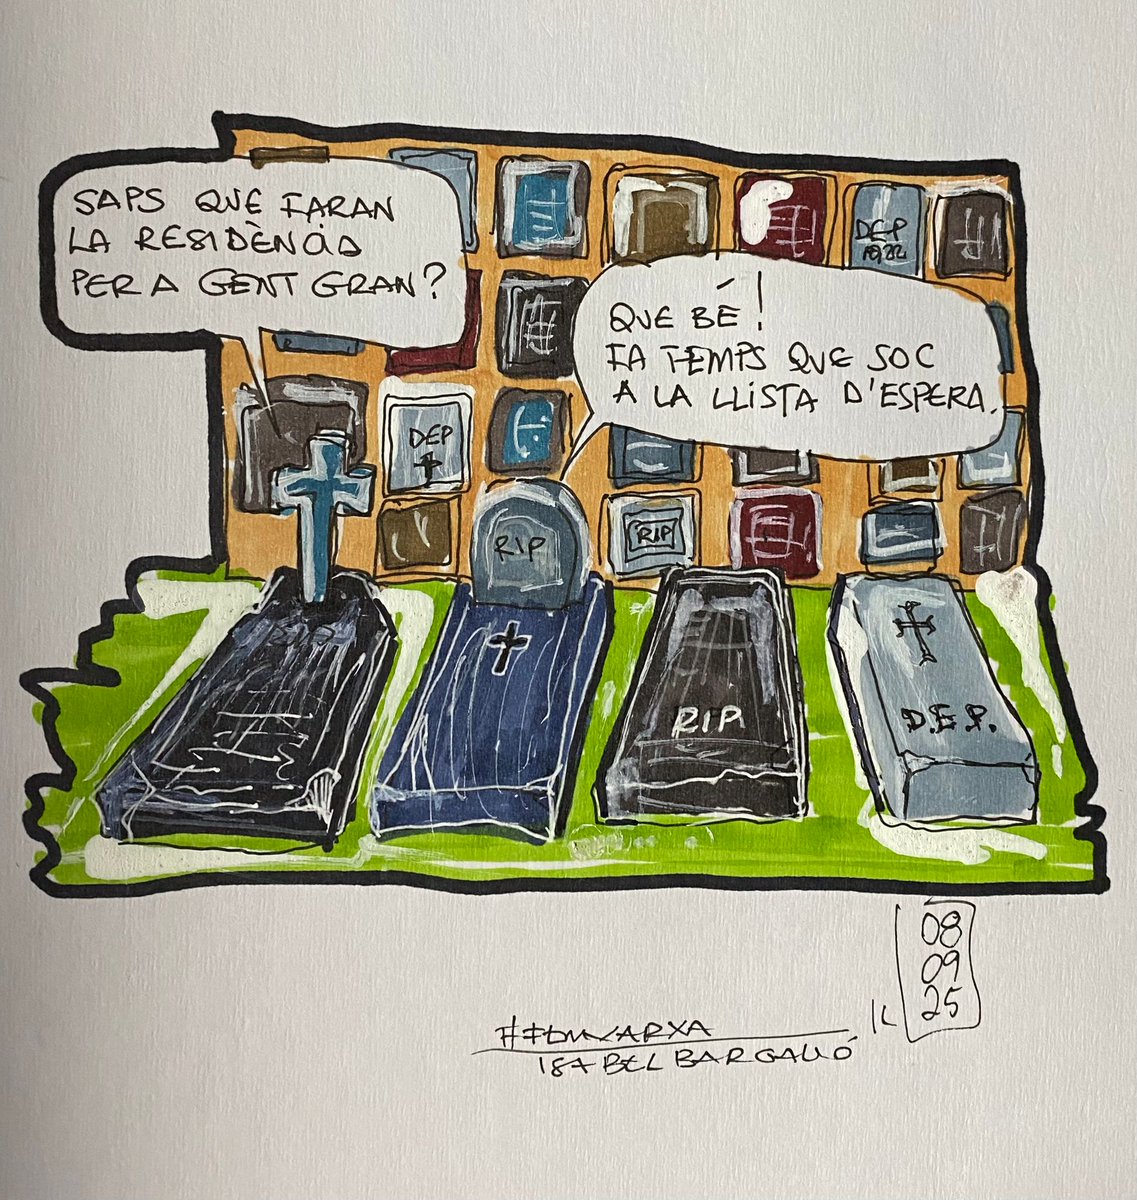 SAPS QUE FARAN
LA RESIDÈNCIA
PER A GENT GRAN?
QUE BÉ!
FA TEMPS QUE SOC
A LA LLISTA D'ESPERA.
DEP
DEP
RIP
RIP
RIP
RIP
D.E.P.
08
09
25
ISABEL BARGALLÓ